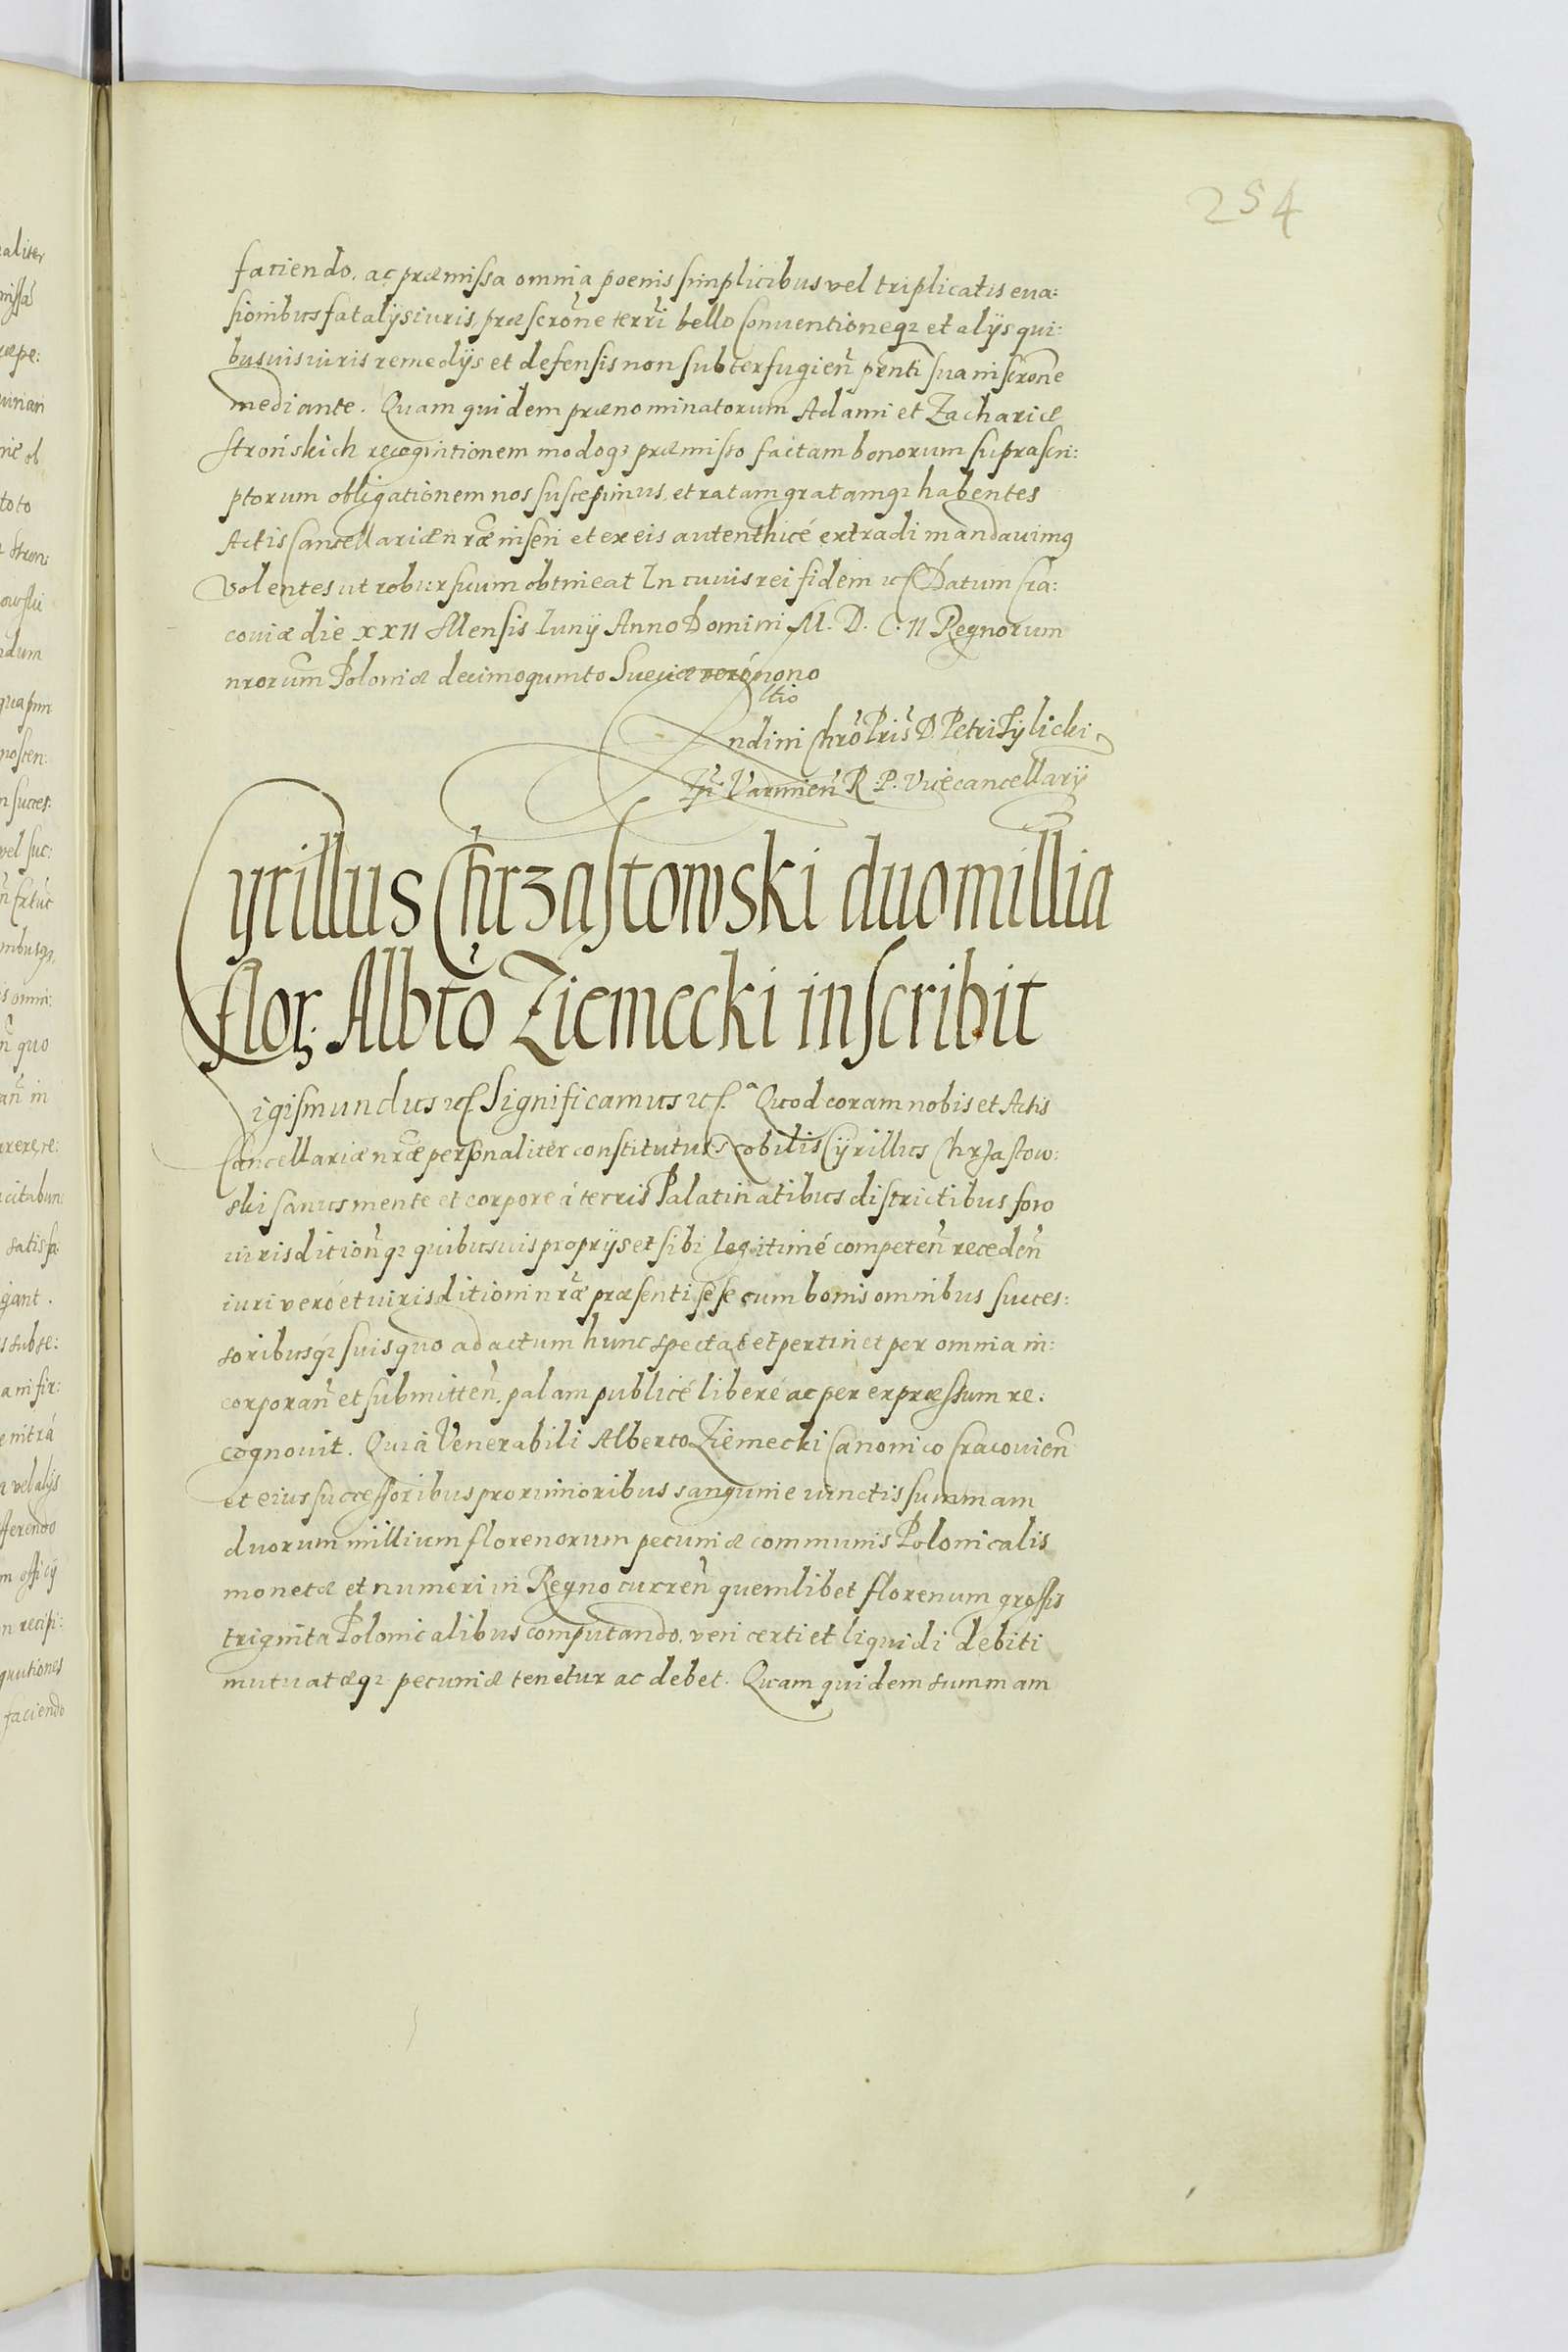 254
faciendo. ac præmissa omnia poenis simplicibus vel triplicatis eua:
sionibus fatalÿs iuris, præscrōne terr̃i bello conuentioneqꝫ et alÿs qui:
busuis iuris remedÿs et defensis non subterfugien̄ pn̄ti sua inscrōne
mediante. Quam quidem prænominatorum Adami et Zachariæ
Strońskich recognitionem modoqꝫ præmisso factam bonorum suprascri:
ptorum obligationem nos suscepimus, et ratam gratamqꝫ habentes
Actis Cancellariæ nr̄æ inseri et ex eis autenthicé extradi mandauimꝰ
Volentes ut robur suum obtineat In cuius rei fidem ꝛcſ Datum Cra:
couiæ die XXII Mensis Iunÿ Anno Domini M. D. C. II Regnorum
nrorum̄ Poloniæ decimoquinto Sueciæ veró nono
Rndini Chrō Pris̄ D Petri Tÿlicki
Varmien̄ R. P. Vicecancellarÿ
Cyrillus Chrząstowski duo millia
flor: Albtō Ziemecki inscribit
Sigismundus ꝛcſ Significamus ꝛcſ. Quod coram nobis et Actis
Cancellariæ nr̄æ personaliter constitutus Nobilis Cÿrillus Chrząstow:
ski sanus mente et corpore á terris Palatinatibus districtibus foro
iurisdition̄qꝫ quibusuis proprÿs et sibi legitimé competen̄ receden̄
iuri veró et iurisditioni nr̄æ præsenti sese cum bonis omnibus succes:
soribusqꝫ suis quo ad actum hunc spectat et pertinet per omnia in:
corporan̄ et submitten̄. palam publicé liberé ac per expræssum re:
cognouit. Quia Venerabili Alberto Ziemecki Canonico Cracouien̄
et eius successoribus proximioribus sanguine iunctis summam
duorum millium florenorum pecuniæ communis Polonicalis
monetæ et numeri in Regno curren̄ quemlibet florenum grossis
triginta Polonicalibus computando. veri certi et liquidi debiti
mutuatæqꝫ pecuniæ tenetur ac debet. Quam quidem summam